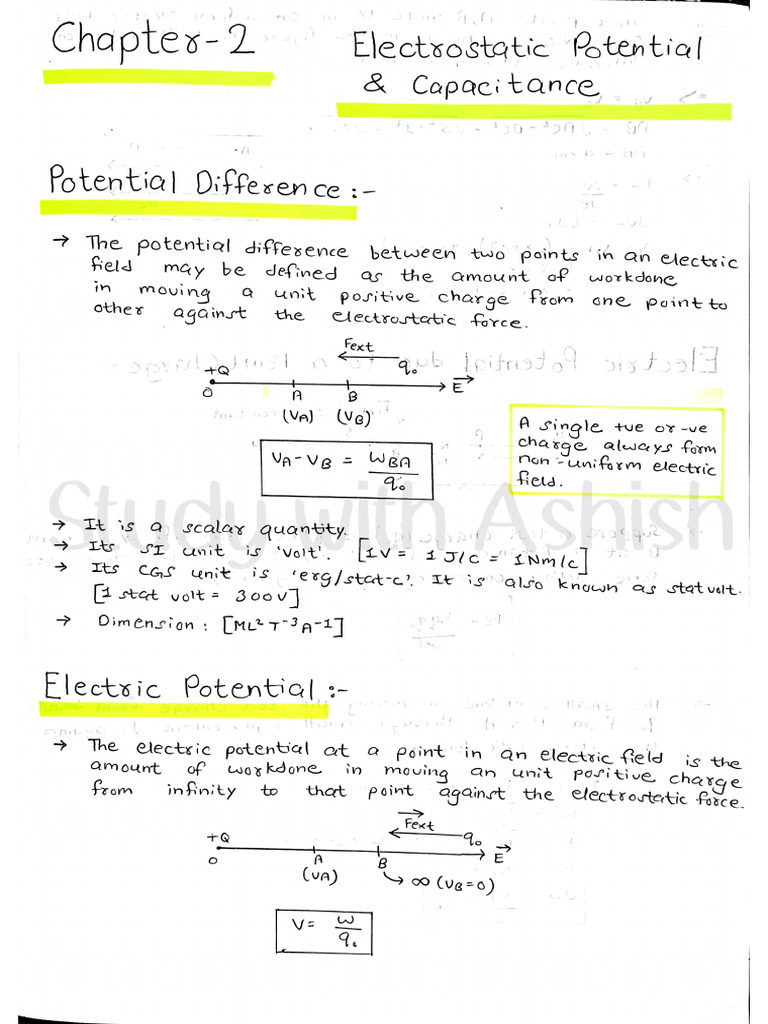 Chapter-2 Electrostatic Potential
& Capacitance
Potential Difference:-
→ The potential difference between two points in an electric
field may be defined as the amount of workdone
in moving a unit positive charge from one point to
other against the electrostatic force.
Fext
+Q q₀
O A B E
(VA) (VB)
VA-VB = WBA/q₀
A single +ve or -ve
charge always form
non-uniform electric
field.
Study with Ashish
→ It is a scalar quantity.
→ Its SI unit is 'volt'. [1V = 1 J/C = 1Nm/c]
→ Its CGS unit is 'erg/stat-c'. It is also known as statvolt.
[1 stat volt = 300V]
→ Dimension : [ML² T⁻³ A⁻¹]
Electric Potential :-
→ The electric potential at a point in an electric field is the
amount of workdone in moving an unit positive charge
from infinity to that point against the electrostatic force.
Fext
+Q q₀
O A B E
(VA) ↳ ∞ (VB=0)
V = W/q₀